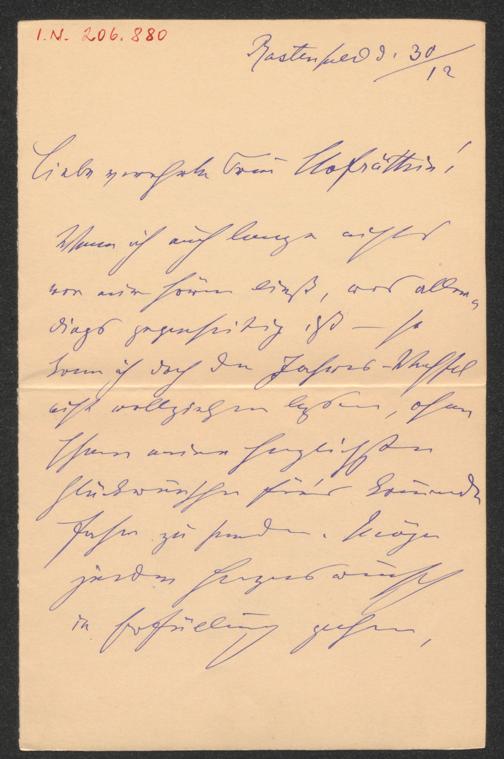 I.N. 206.880
Rastenfeld d. 30/12
Liebe verehrte Frau Hofräthin!
Wenn ich auch lange nichts
von mir hören ließ, was allem
dings gegenseitig ist — so
kann ich doch den Jahres-Wechsel
nicht vollziehen lassen, ohne
Ihnen meine herzlichsten
Glückwünsche für's kommende
Jahr zu senden. Möge
jeder Herzenswunsch
in Erfüllung gehen,